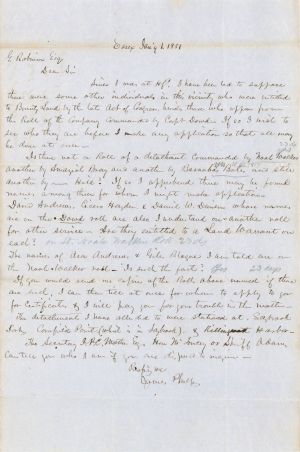 Essex Jan'y 1. 1851
G. Robinson Esq
Dear Sir
Since I was at Hd. I have been led to suppose
there were some other individuals in this vicinity who were entitled
to Bounty Land by the late Act of Congress, besides those who appear from
the Roll of the Company Commanded by Capt Doud. If so I wish to
see who they are before I make any application so that all may
be done at once
Is there not a Roll of a detachment Commanded by Noah Walker
another by Amazial Bray and another by Barnabas and still
another by Hull? If so I apprehend there may be found
names among them for whom I might make application
Davis Andrews, Hayden & Daniel W. Denison whose names
are on the Doud roll are also I understand on another roll
for other service. Are they entitled to a Land Warrant on
each? on St. Noah Walker Roll 23 dy
The names of Asa Andrews & Gile Blague I am told are on
the Noah Walker roll. Is such the fact? Yes 23 days
If you would send me copies of the Rolls above named if there
are such, I can then tell at once for whom to apply to you
for Certificates & I will pay you for your trouble in the matter.
The detachments I have alluded to were stationed at Saybrook
Point (what is in Saybrook) & Killingworth Harbor
The Secretary Esq. Hon. or Sheriff Adams
Can tell you who I am if you are disposed to enquire
Resp'y yrs
James Phelps